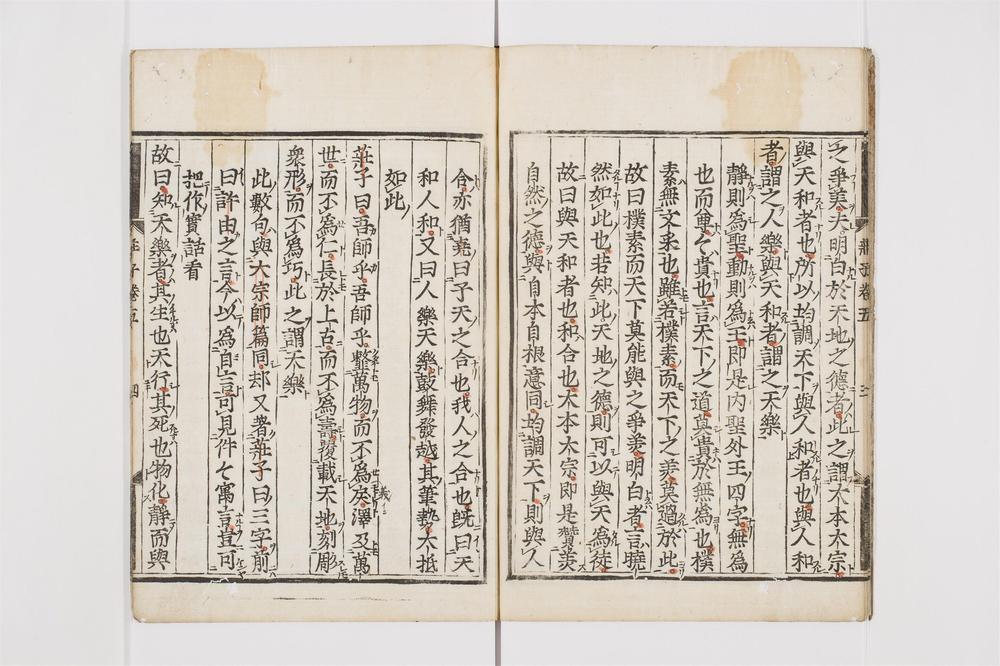 莊子卷五 三
之爭美夫明白於天地之德者此之謂大本大宗
與天和者也所以均調天下與人和者也與人和
者謂之人樂與天和者謂之天樂
靜則爲聖動則爲王即是内聖外王四字無爲
也而尊々貴也言天下之道莫貴於無爲也樸
素無文采也雖若樸素而天下之美莫過於此
故曰樸素而天下莫能與之爭美明白者言曉
然如此也若知此天地之德則可以與天爲徒
故曰與天和者也和合也大本大宗即是贊美
自然之德與自本自根意同均調天下則與人
合亦猶堯曰子天之合也我人之合也既曰天
和人和又曰人樂天樂鼓舞發越其筆勢大抵
如此
莊子曰吾師乎吾師乎𩐎萬物而不爲戾澤及萬
世而不爲仁長於上古而不爲壽覆載天地刻彫
衆形而不爲巧此之謂天樂
此數句與大宗師篇同却又着莊子曰三字前
曰許由之言今以爲自言可見件々寓言豈可
把作實話看
故曰知天樂者其生也天行其死也物化靜而與
莊子卷五 四